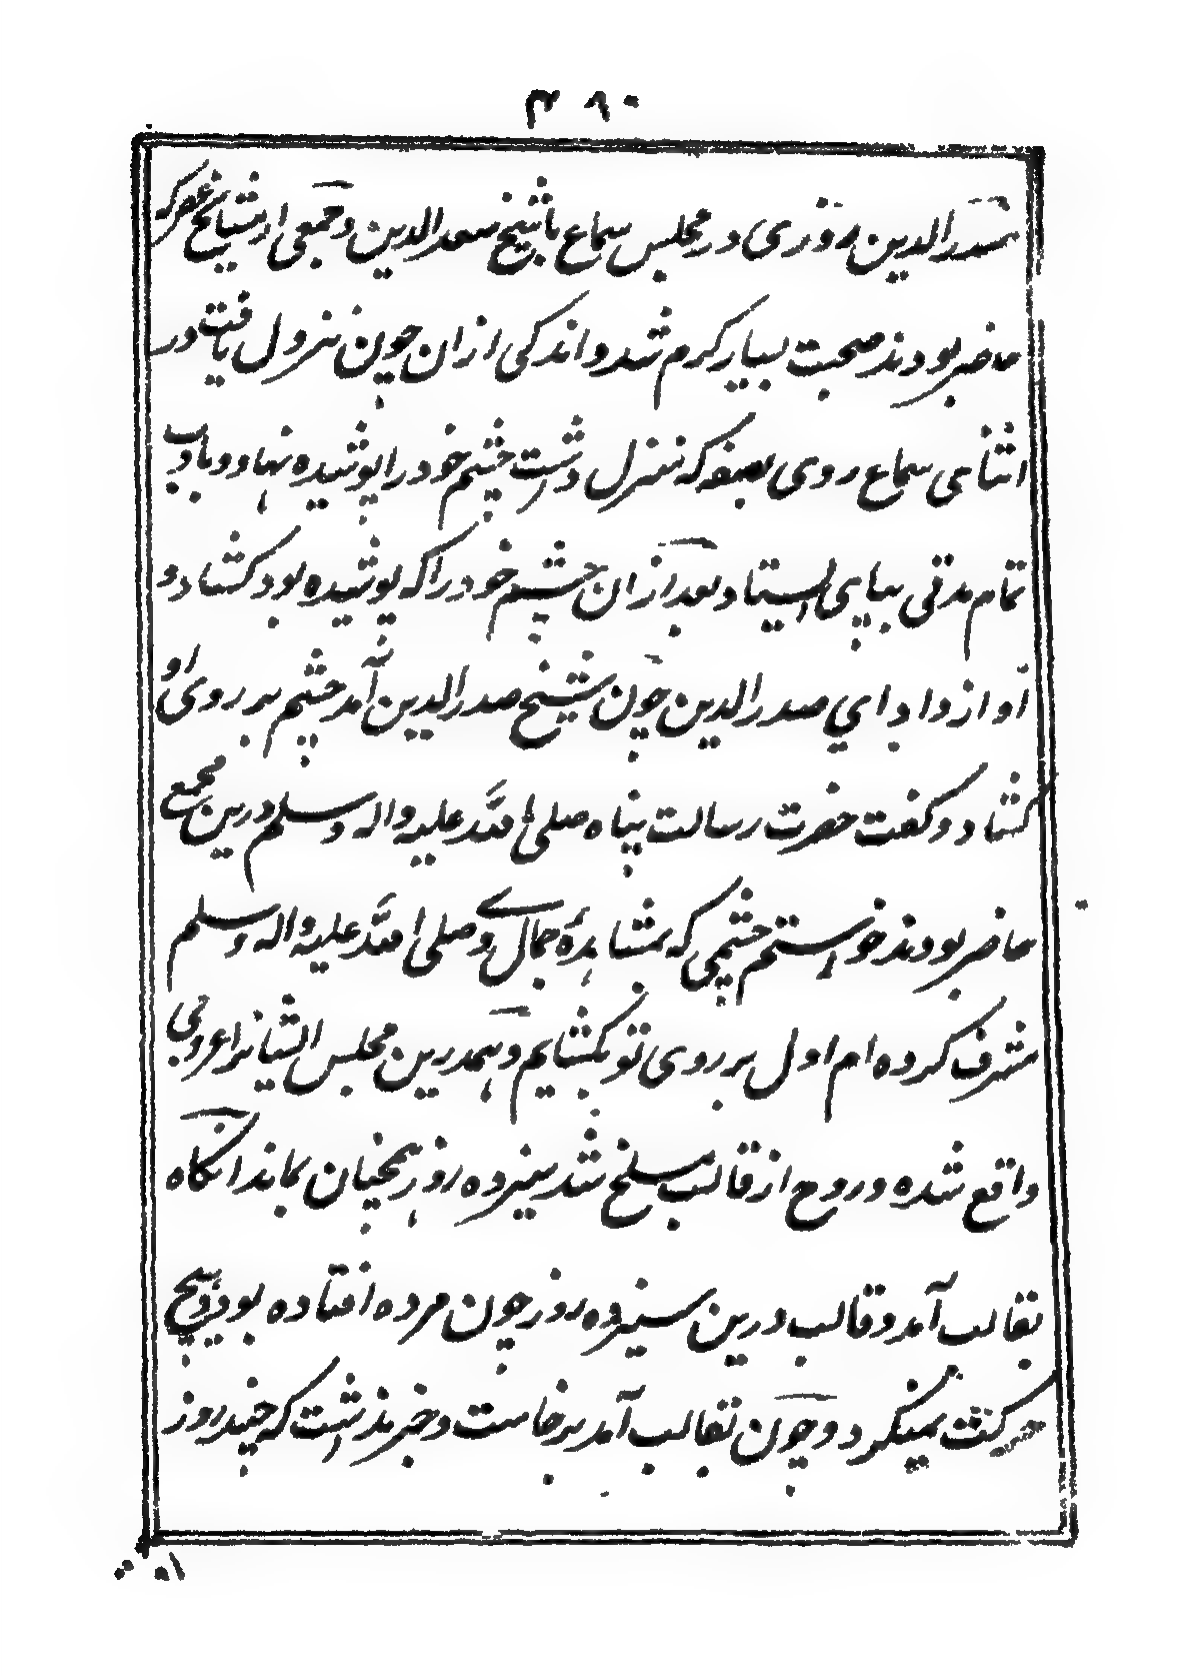 ۴۹۰
صدرالدین روزی در مجلس سماع با شیخ سعدالدین و جمعی از مشایخ عصر که
حاضر بودند صحبت بسیار گرم شد و اندکی ازان چون نزول یافت در
اثنای سماع روی بصفه که منزل داشت چشم خود را پوشیده نهاد و باادب
تمام مدتی بپای استاد و بعد ازان چشم خود را که پوشیده بود کشاد و
آواز داد ای صدرالدین چون شیخ صدرالدین آمد چشم بر روی او
کشاد و گفت حضرت رسالت پناه صلی الله علیه واله وسلم درین مجمع
حاضر بودند خواستم چشمی که بمشاهدهٔ جمال وی صلی الله علیه واله وسلم
مشرف کرده ام اول بر روی تو بکشایم و همدرین مجلس ایشانرا عروجی
واقع شده و روح از قالب مسلخ شد سیزده روز همچنان بماند آنگاه
بقالب آمد و قالب درین سیزده روز چون مرده افتاده بود و هیچ
حرکت نمیکرد و چون بقالب آمد برخاست و خبر نداشت که چند روز